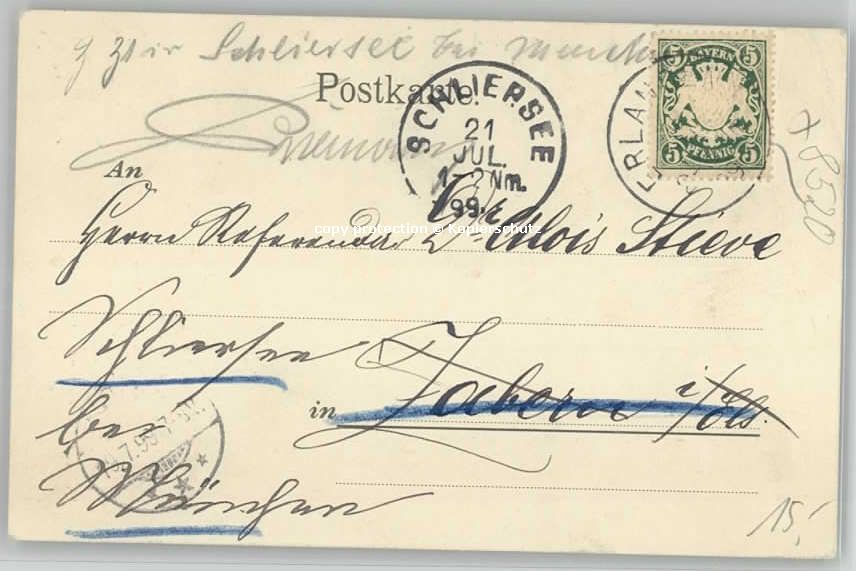 z Zt in Schliersee bei München
Postkarte.
SCHLIERSEE
21
JUL.
1-2Nm.
99.
ERLANGEN
BAYERN
5 5
5 5
PFENNIG
+ 8520
An
copy protection @ Kopierschutz
Herrn Referendar Dr Alois Stieve
Schliersee
in Zabern i/Els.
bei
München
.7.99.7-8
15,-